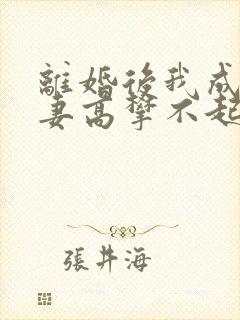 離婚後我成
妻高攀不起
張井海